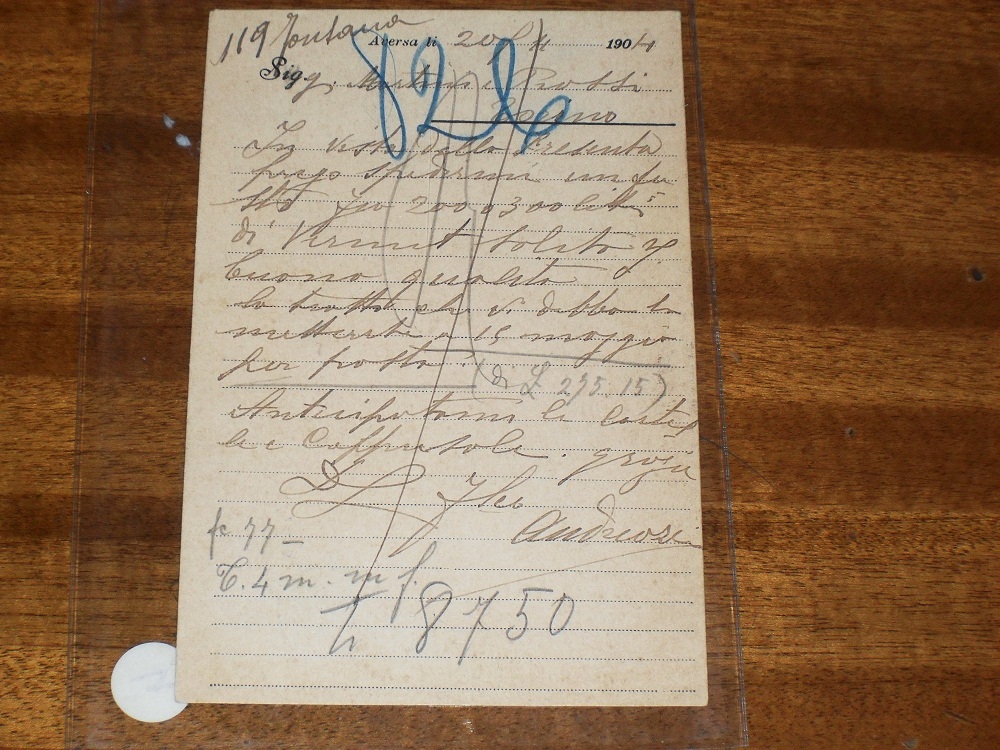 119 Fontana
Aversa li 20/4 1904
Sigg. Martini e Rossi
Torino
In vista della presente
prego spedirmi un fu
sto di 200 o 300 litri
di Vermut solito
buono qualità
la tratta che vi debbo la
metterete a 15 maggio
per posta. (di L 235.15)
Anticipatami le cartel
le e Cappsule. grazie
Andreozzi
77 –
4 m. m f.
L 8750
826